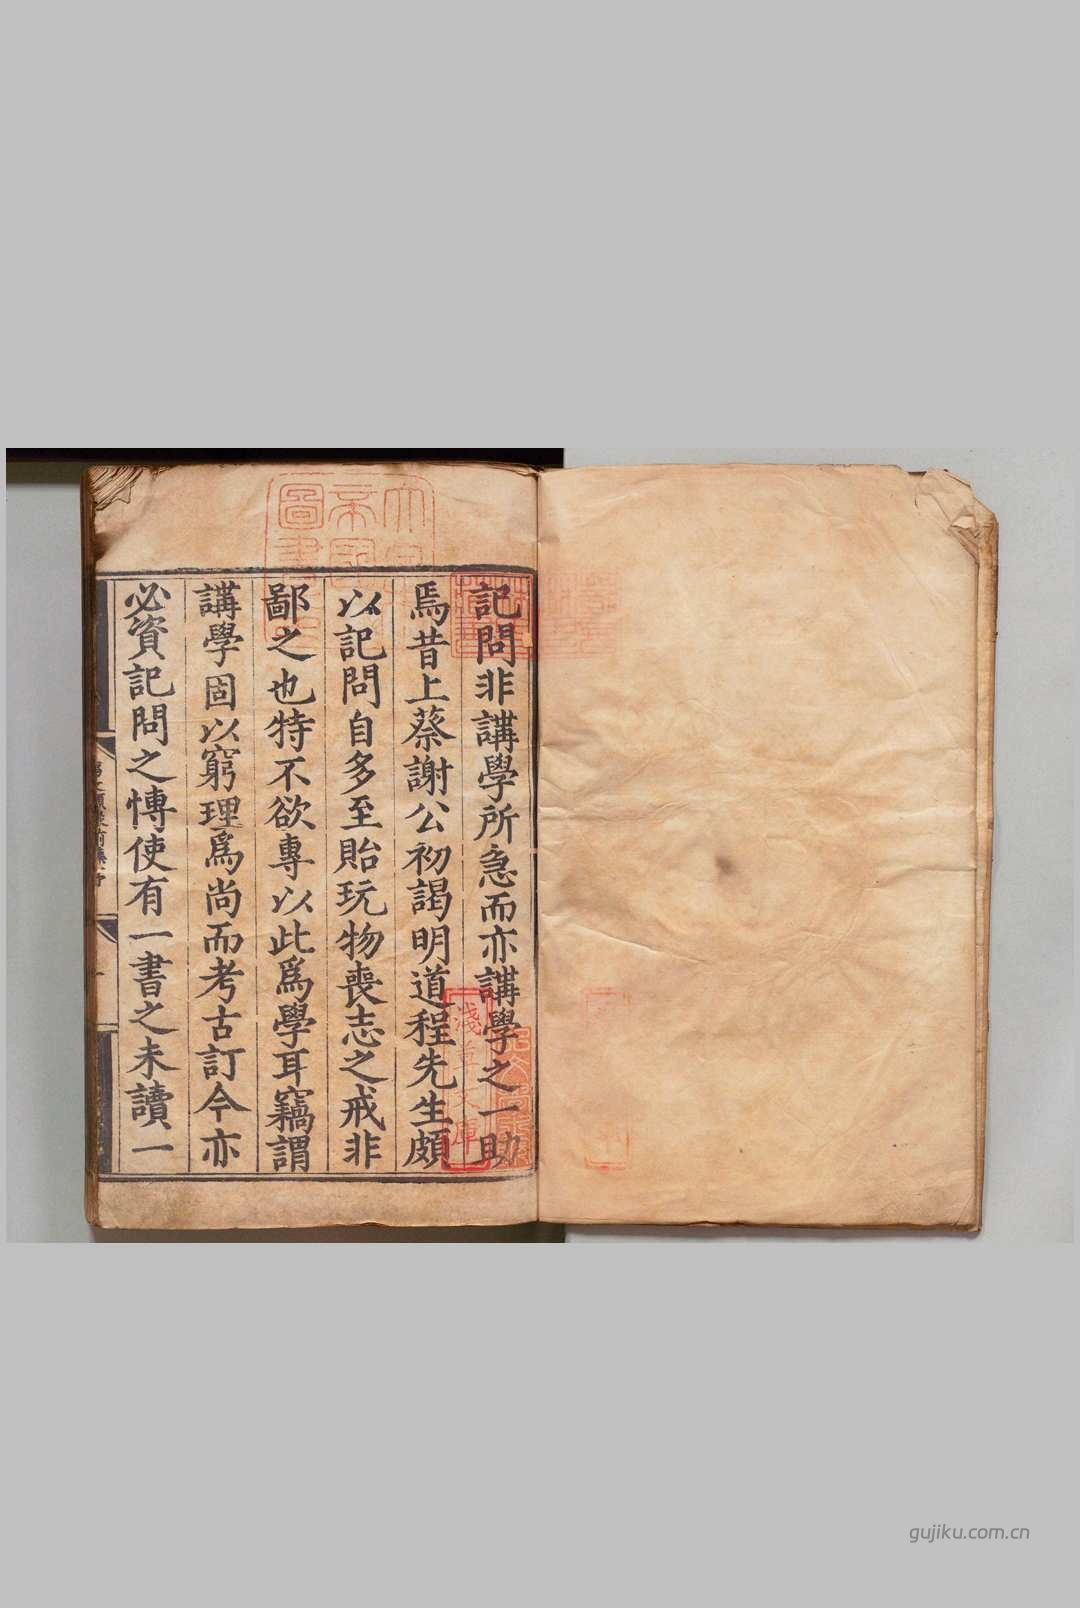 記問非講學所急而亦講學之一助
焉昔上蔡謝公初謁明道程先生頗
以記問自多至貽玩物喪志之戒非
鄙之也特不欲專以此爲學耳竊謂
講學固以窮理爲尚而考古訂今亦
必資記問之博使有一書之未讀一
淺草文庫
gujiku.com.cn